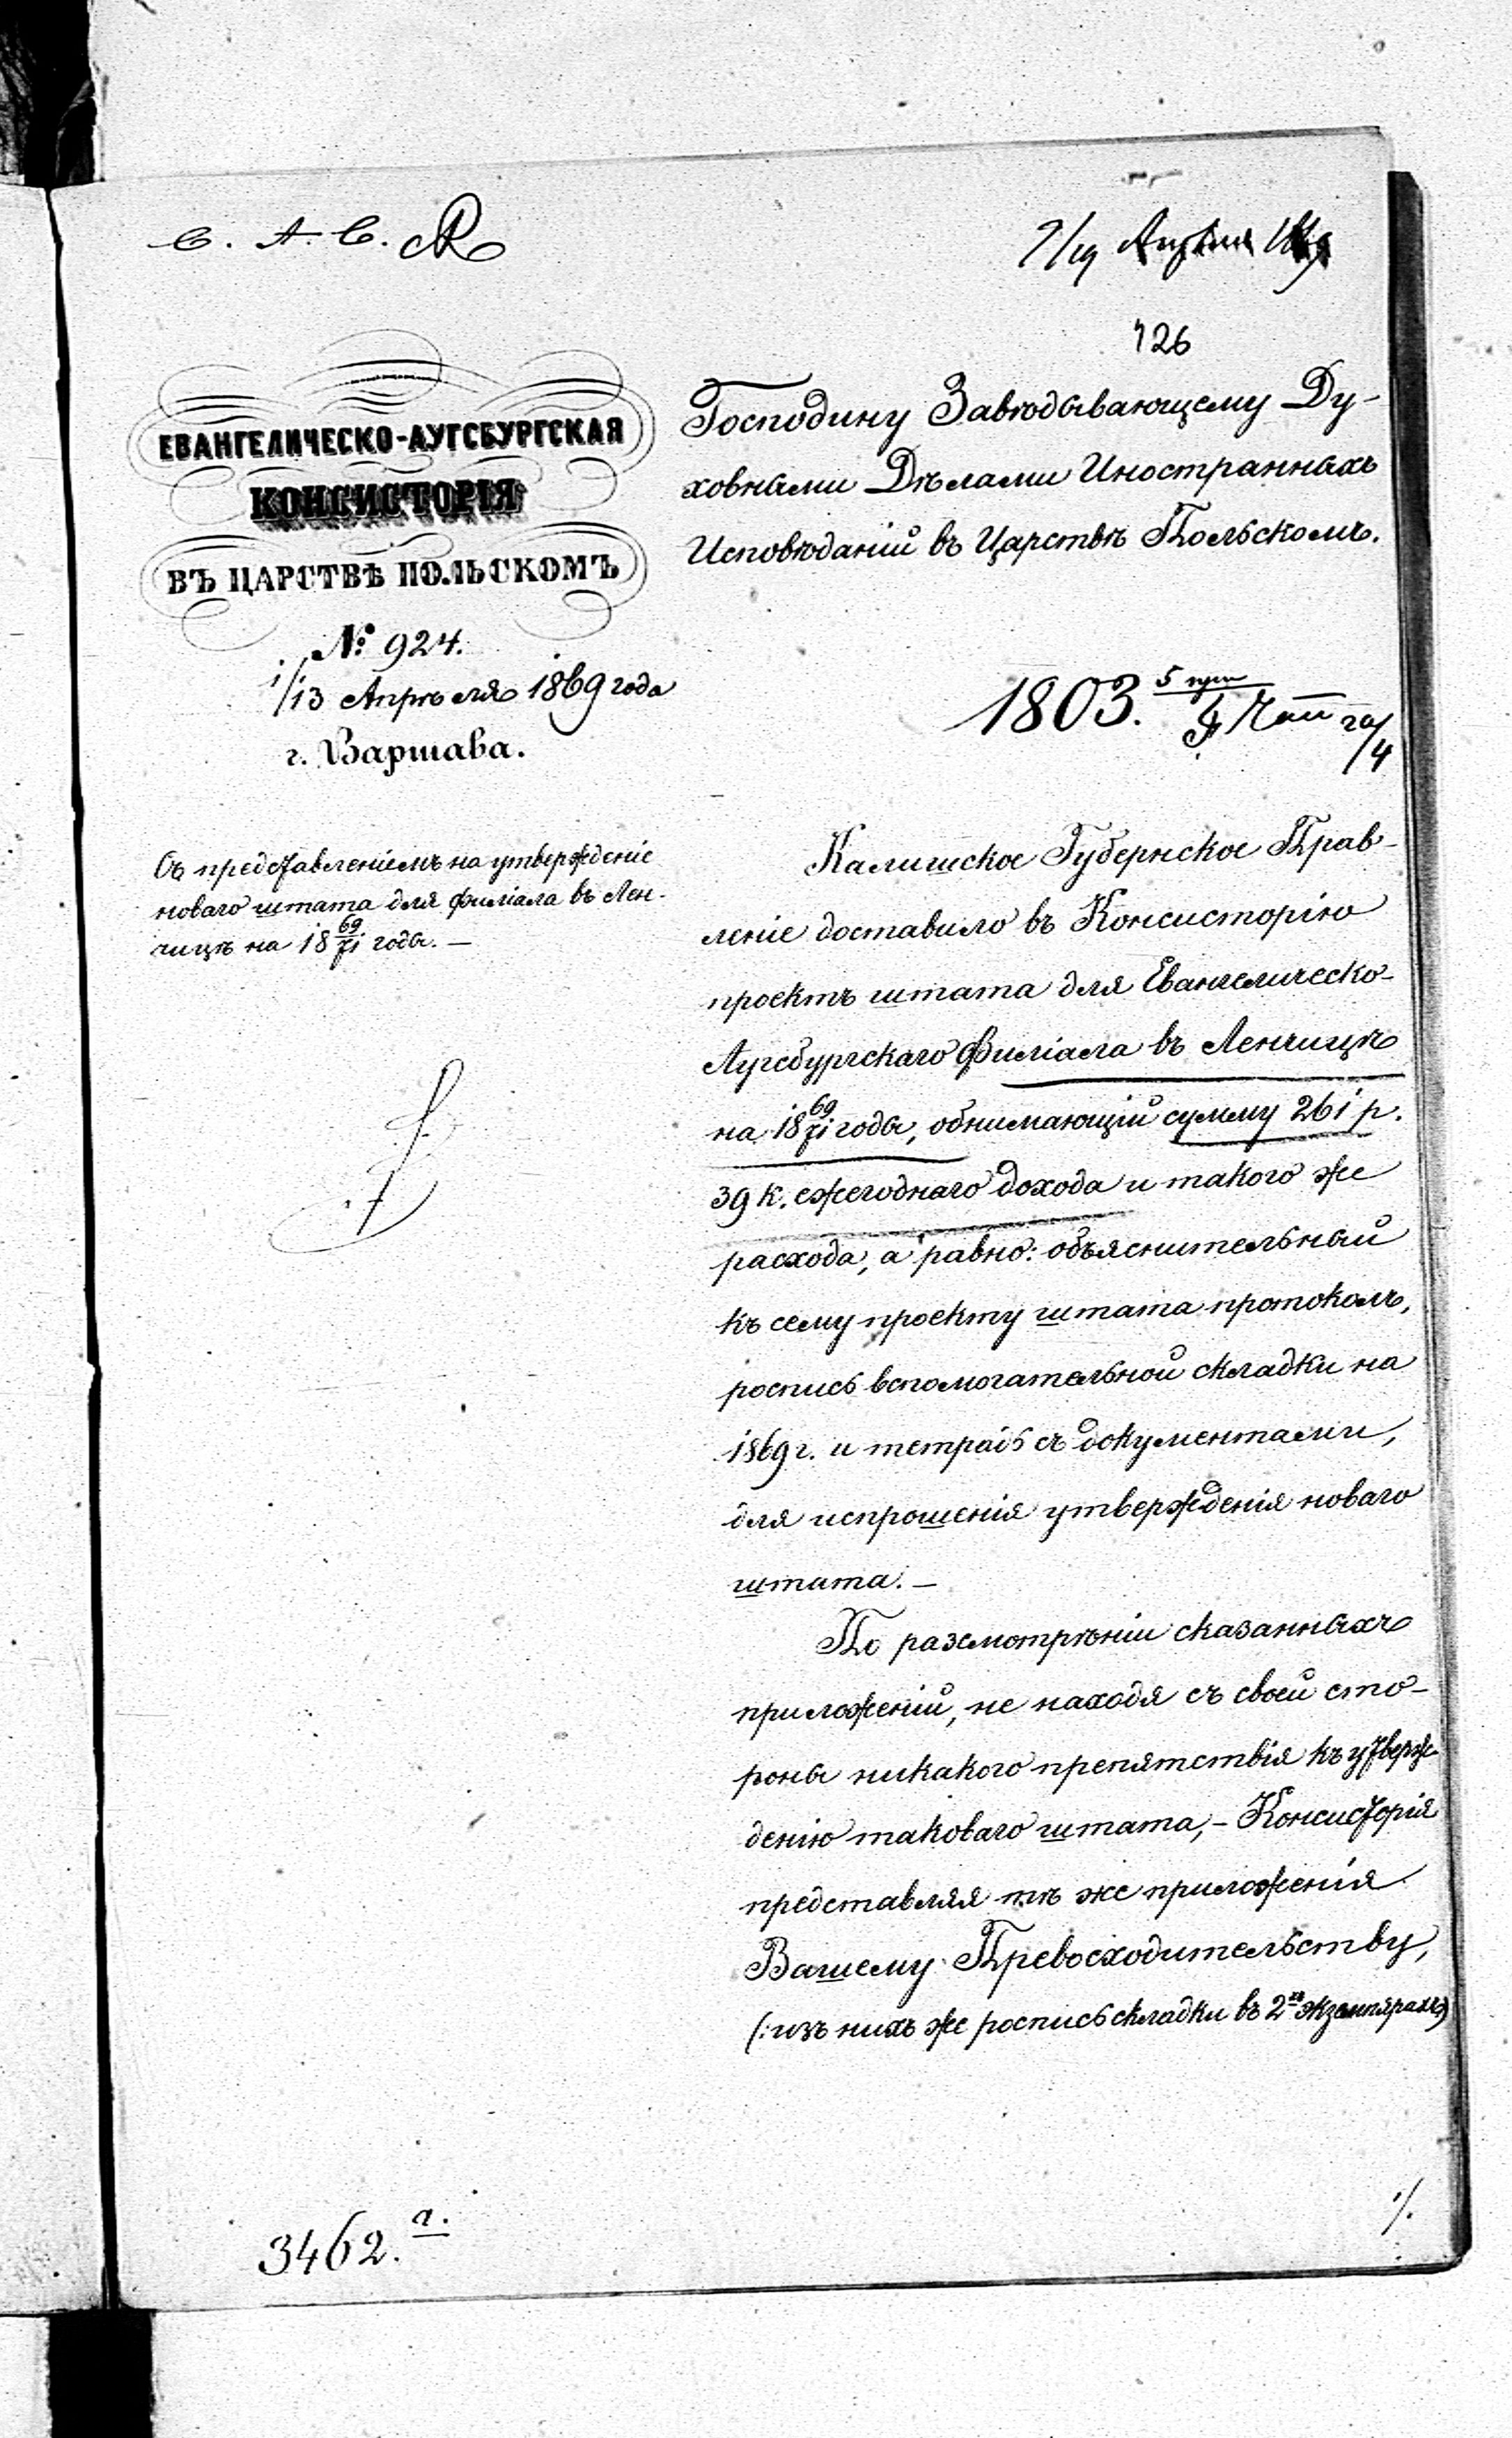 7/19 Апрѣля 1869
126
ЕВАНГЕЛИЧЕСКО-АУГСБУРГСКАЯ
КОНСИСТОРІЯ
ВЪ ЦАРСТВѢ ПОЛЬСКОМЪ
№ 924.
1/13 Апрѣля 1869 года
г. Варшава.
Съ представленіемъ на утвержденіе
новаго штата для филіала въ Лен-
чицѣ на 18 69/71 годы. —
Господину Завѣдывающему Ду-
ховными Дѣлами Иностранныхъ
Исповѣданій въ Царствѣ Польскомъ.
1803.
20/4
Калишское Губернское Прав-
леніе доставило въ Консисторію
проектъ штата для Евангелическо-
Аугсбургскаго Филіала въ Ленчицѣ
на 18 69/71 годы, обнимающій сумму 261 р.
39 к. ежегоднаго дохода и такого же
расхода, а равно: объяснительный
къ сему проекту штата протоколъ,
роспись вспомогательной складки на
1869 г. и тетрадь съ документами,
для испрошенія утвержденія новаго
штата. —
По разсмотрѣніи сказанныхъ
приложеній, не находя съ своей сто-
роны никакого препятствія къ утверж-
денію таковаго штата, — Консисторія
представляя тѣ же приложенія
Вашему Превосходительству,
(: изъ нихъ же роспись складки въ 2хъ экземплярахъ)
./.
3462.